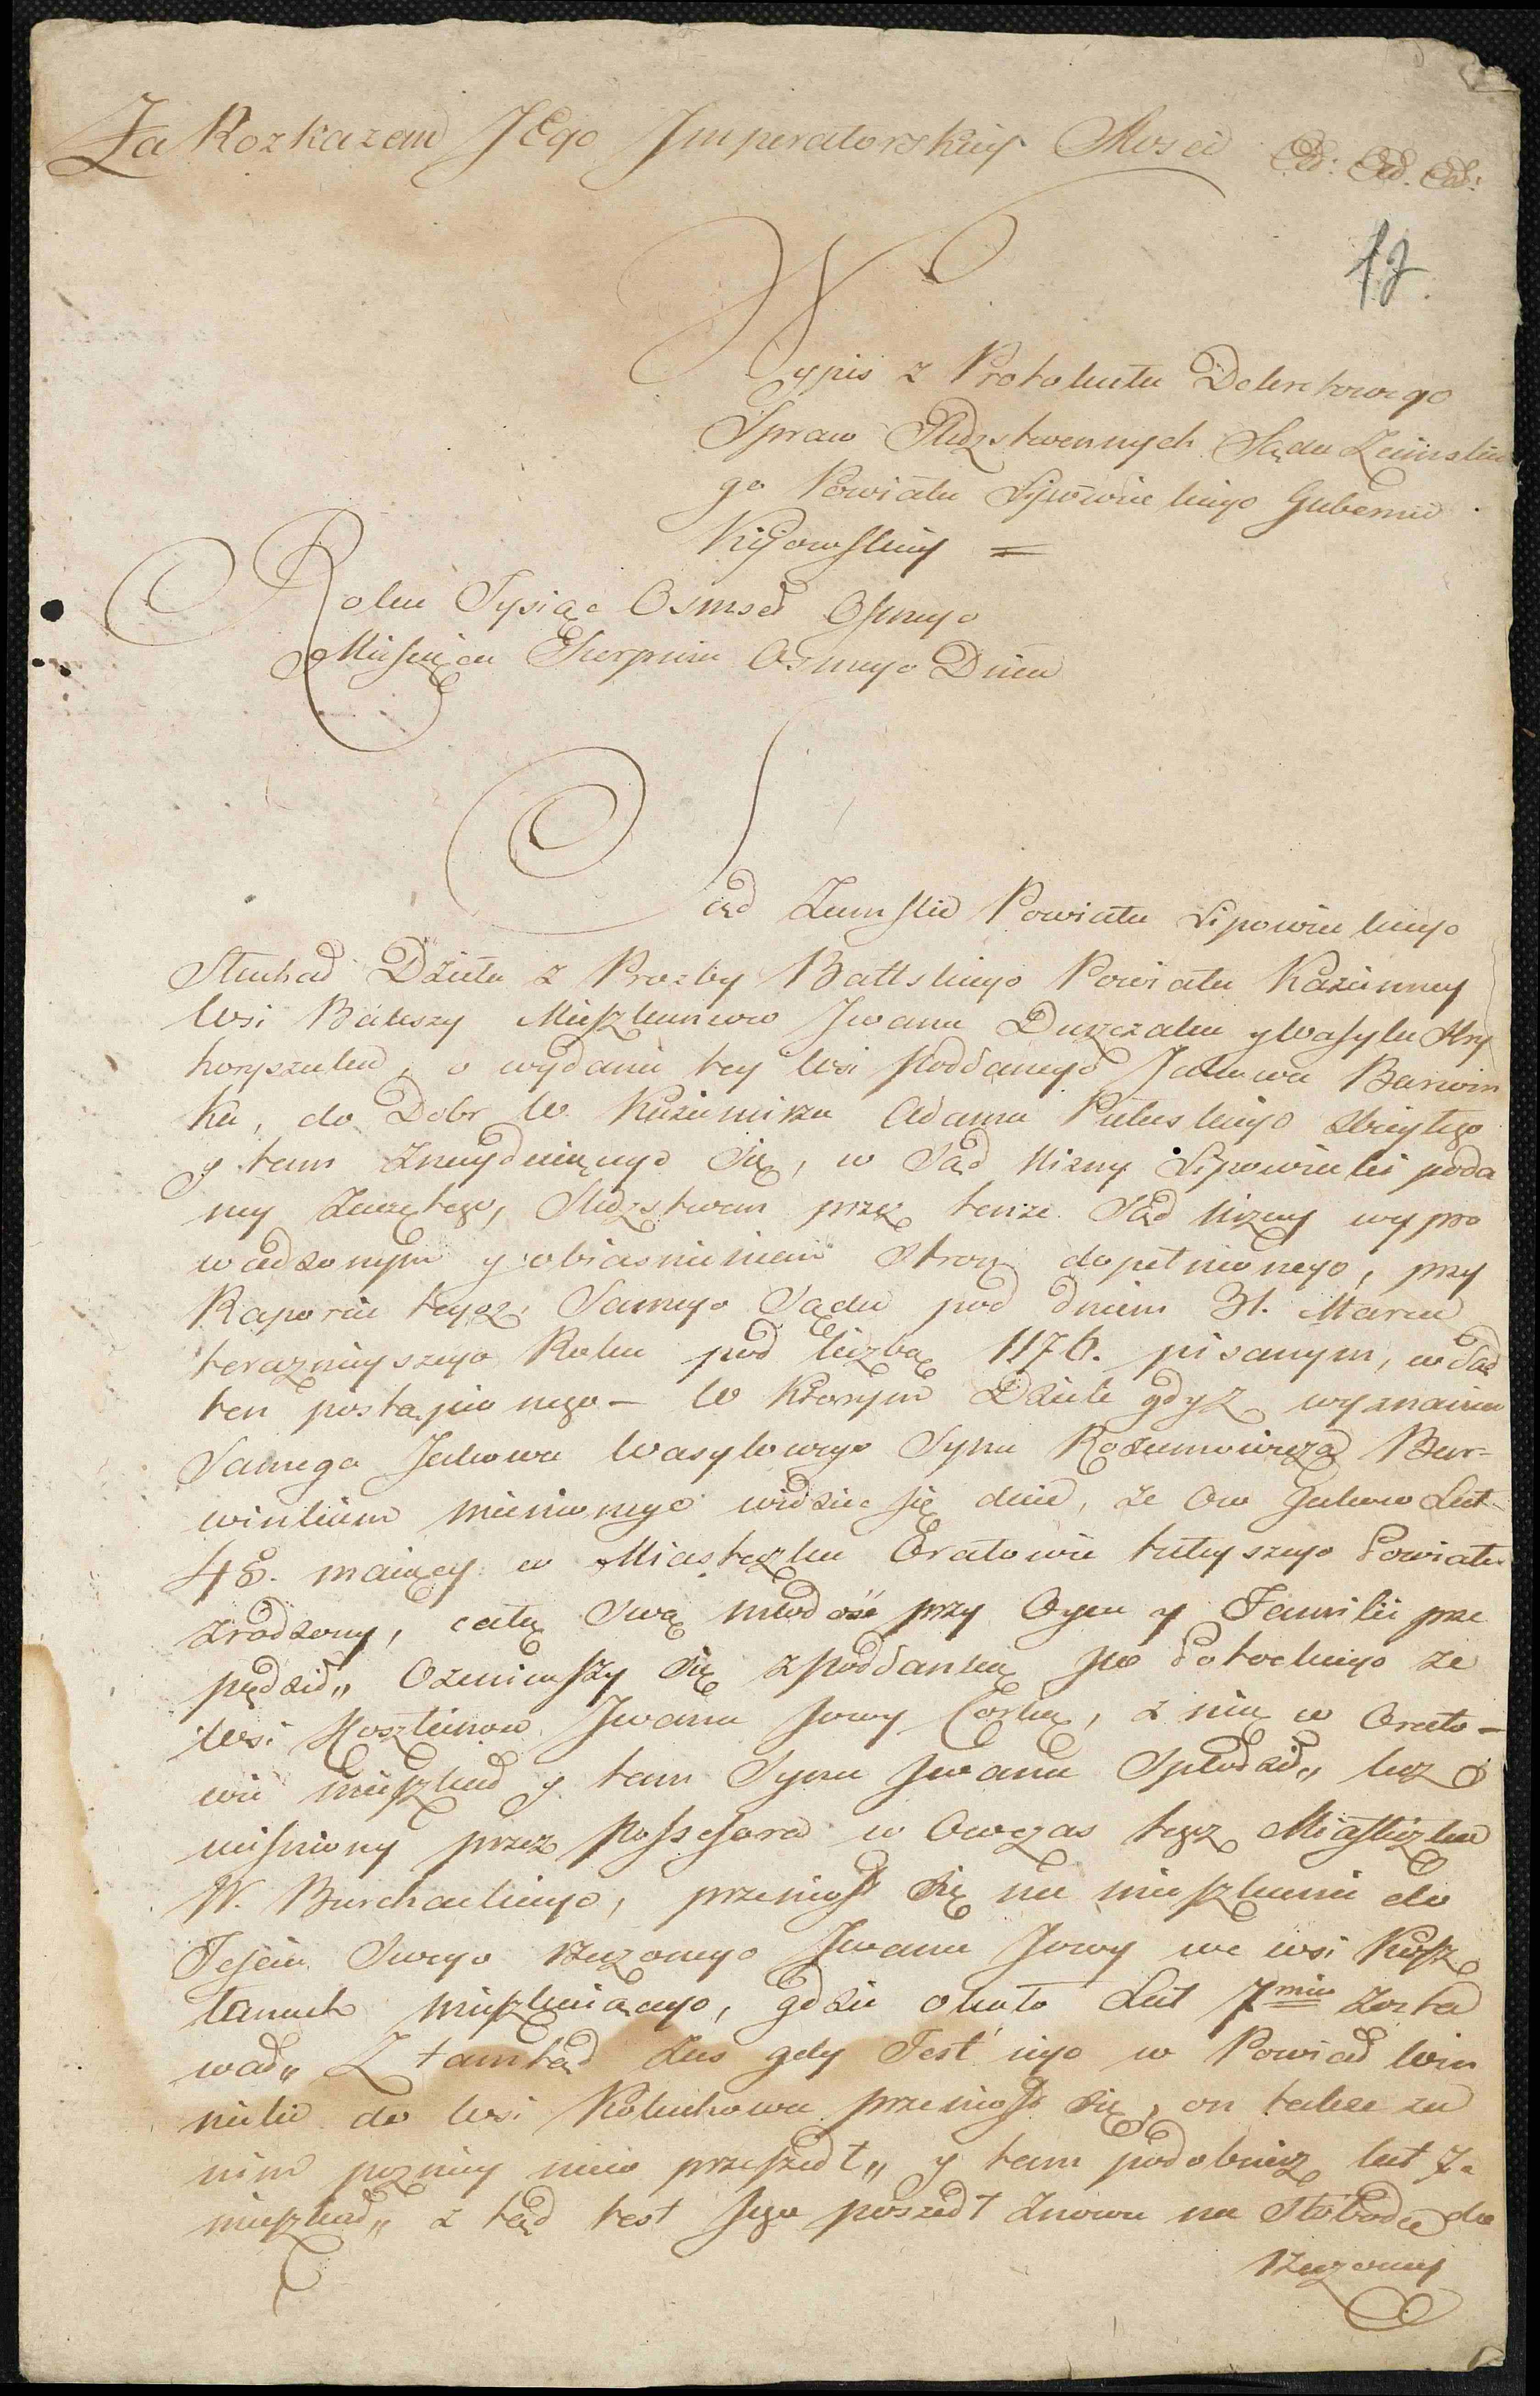 Za Rozkazem JEgo Imperatorskiey Mosci Etc: Etc. Etc:
17.
Wypis z Protokułu Dekretowego
Spraw Śledzstwennych Sądu Ziemskie
go Powiatu Lipowieckiego Gubernii
Kijowskiey =
Roku Tysiąc Osmset Osmego
Miesiąca Sierpnia Osmego Dnia
Sąd Ziemski Powiatu Lipowieckiego
Słuchał Dzieła z Prozby Baltskiego Powiatu Kazienney
Wsi Bakszy Mieszkancow Iwana Duszczaka y Wasyla Hry
horyszaka, o wydanie tey wsi Poddanego Jakowa Barwin
ka, do Dobr W. Kazimirza Adama Pułaskiego zbiegłego
y tam znayduiącego się, w Sąd Nizny Lipowiecki poda
ney zaczętego, Śledzstwem przez tenze Sąd nizny wypro
wadzonym y obiasnieniem stron dopełnionego, przy
Raporcie tegoz Samego Sądu pod dniem 31. Marca
teraznieyszego Roku pod liczbą 1176. pisanym, w Sąd
ten postąpionego – w ktorym Dziele gdy z wyznania
Samego Jakowa Wasylowego Syna Rozumowicza Bar-
winkiem mienionego widziec się daie, ze Ow Jakow Lat
48. maiący w Miasteczku Oratowie tuteyszego Powiatu
zrodzony, całą swą młodość przy Oycu y Familii prze
pędził„ Ozeniwszy się z poddanką JW Potockiego ze
wsi Kosztanow Iwana Jowy Corką, z nią w Orato-
wie mieszkał y tam Syna Iwana Spłodził„ lecz
uisniony przez Possesora w Owczas tegoz Miasteczka
W. Burchackiego, przeniosł się na mieszkanie do
Tescia Swego rzeczonego Iwana Jowy we wsi Kosz
tanach mieszkaiącego, gdzie około Lat 7miu zosta
wał„ Z tamtąd zas gdy Test iego w Powiat Win
nicki do wsi Kotiuchowa przeniosł się, on takze za
nim pozniey nieco przeszedł„ y tam podobniez lat 7.
mieszkał„ z tąd test Jego poszedł znowu na Słobodę do
rzeczoney